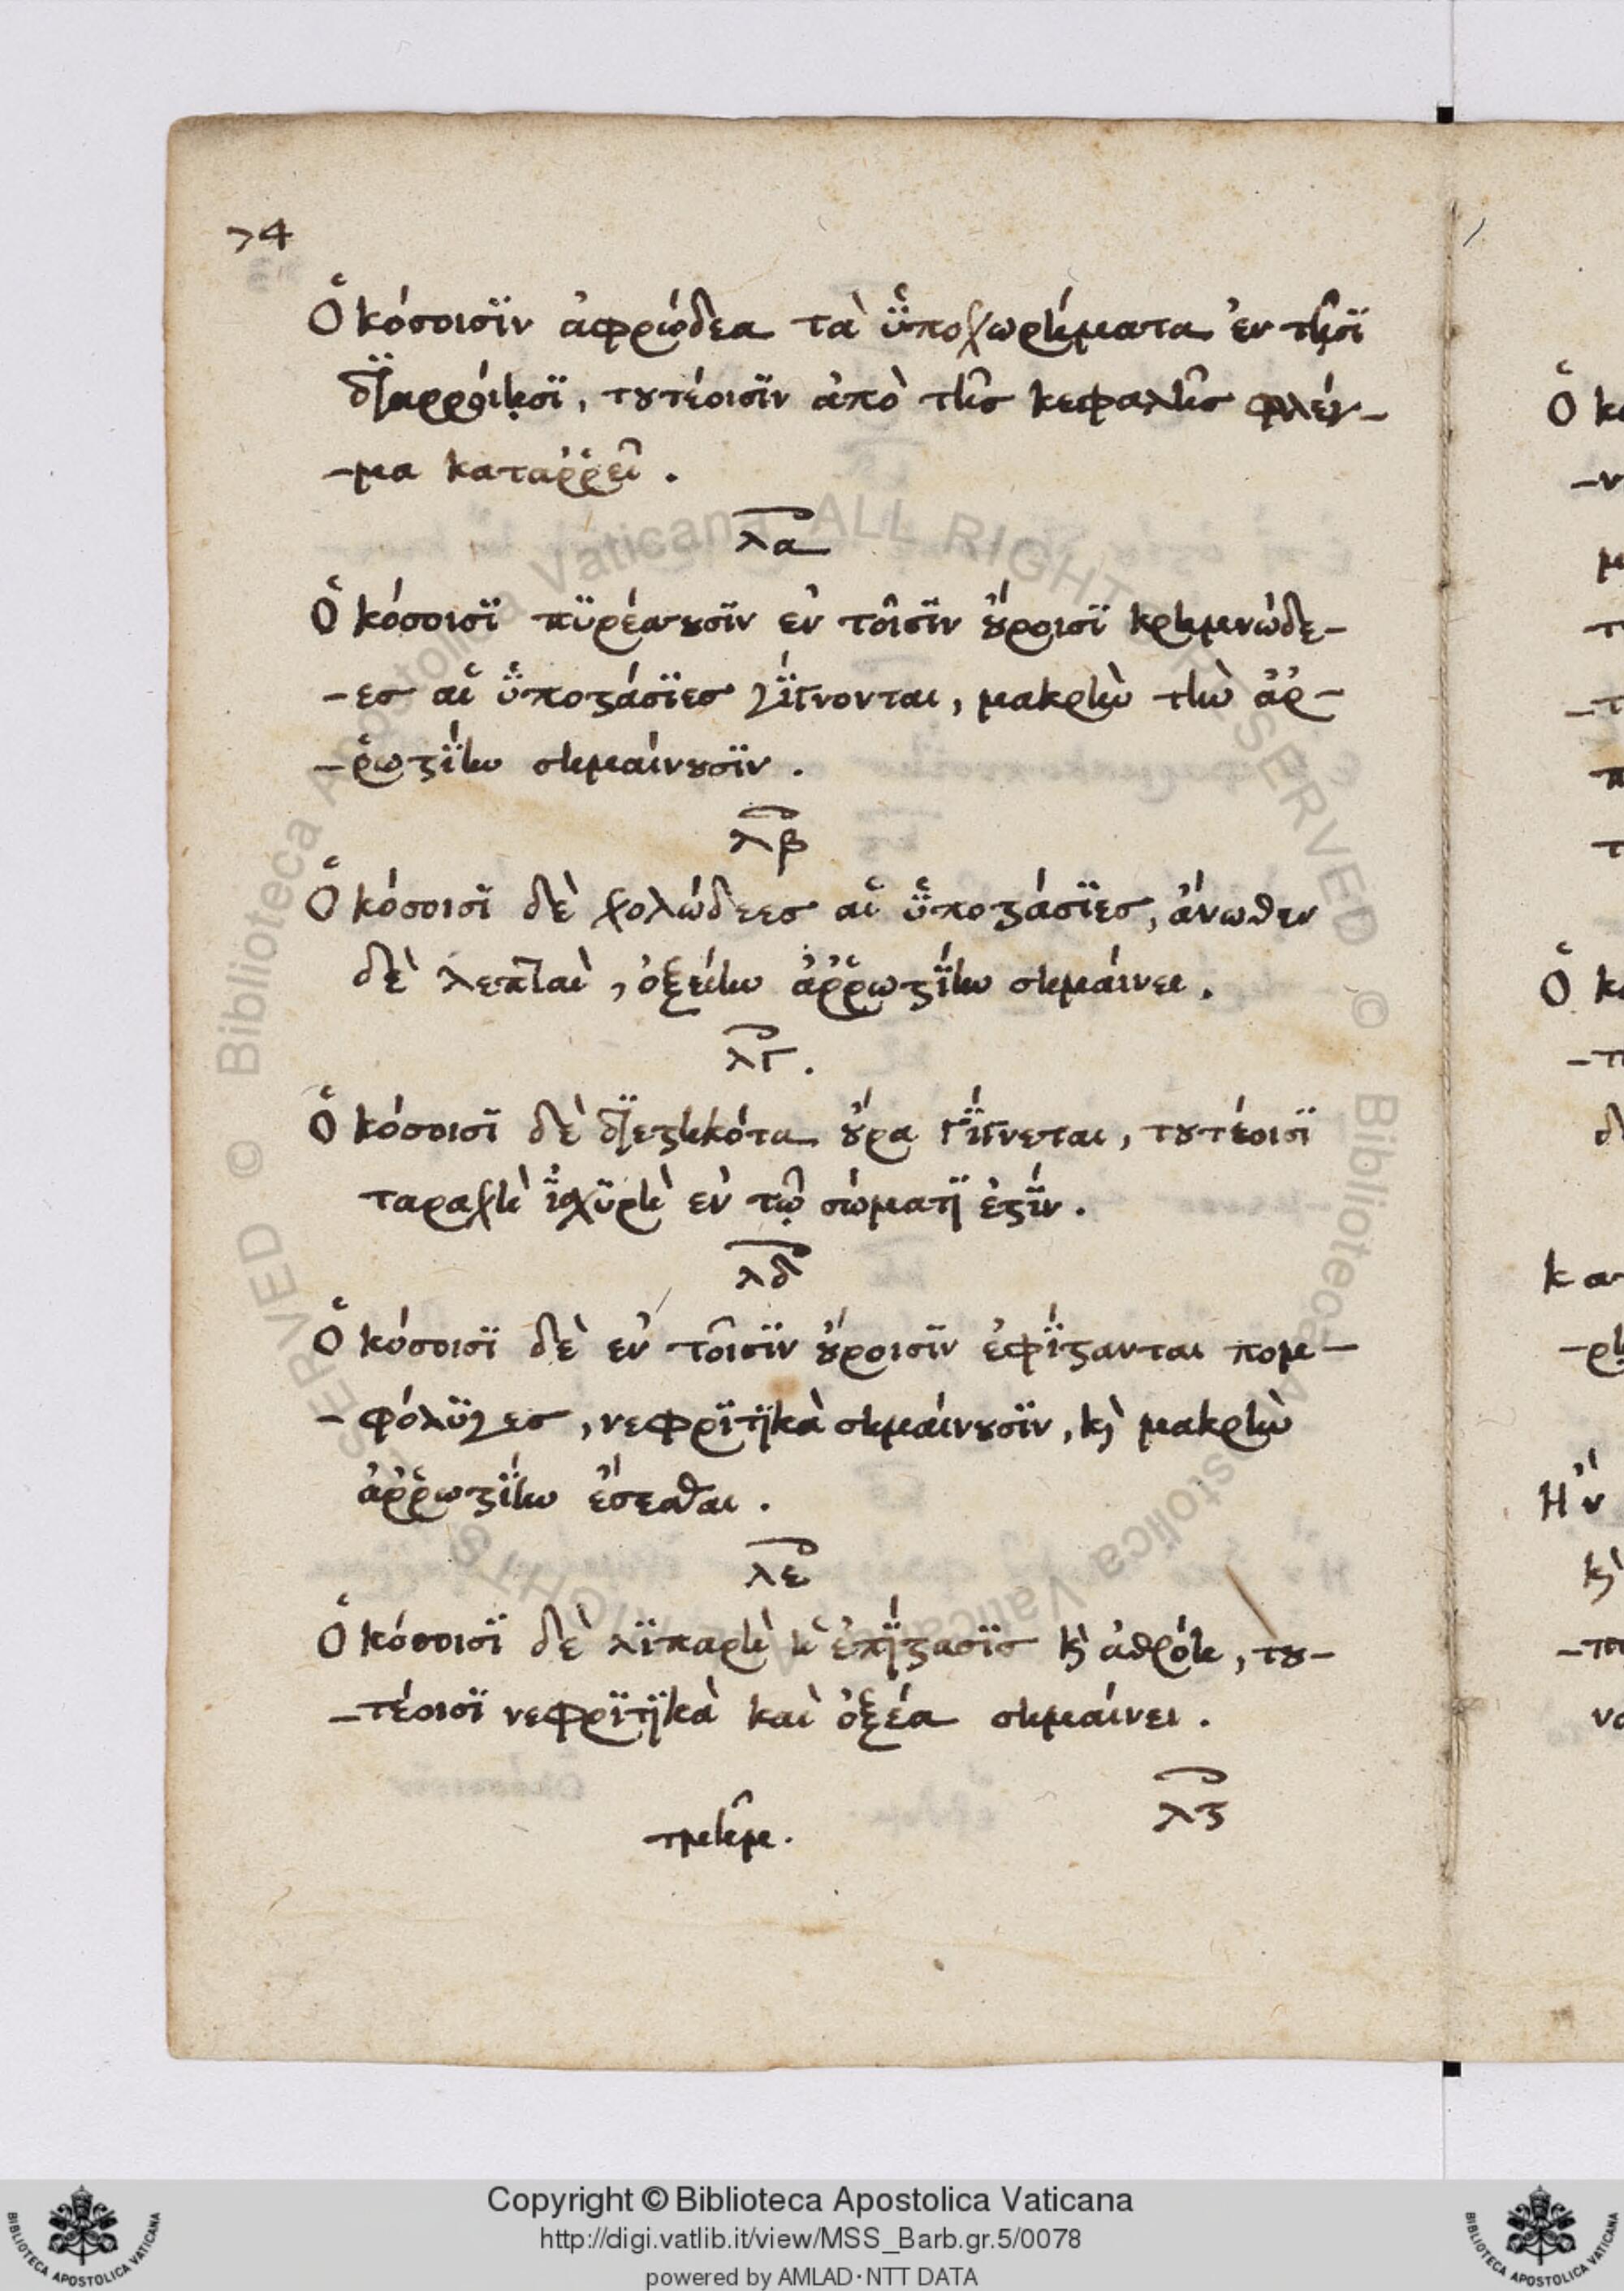 74
Ὁκόσοισϊν ἀφρώδεα τὰ ὑποχωρήματα ἐν τῇσϊ
διαρροίῃσϊ, τουτέοισϊν ἀπὸ τῆς κεφαλῆς φλέγ-
-μα καταῤῥεῖ.
λα
Ὁκόσοισϊ πϋρέσσουσϊν ἐν τοῖσϊν οὔροισϊ κρημνώδε-
-ες αἱ ὑποστάσϊες γΐγνονται, μακρὴν τὴν ἀῤ-
-ῥωστΐην σημαίνουσϊν.
λβ
Ὁκόσοισϊ δὲ χολώδεες αἱ ὑποστάσϊες, ἄνωθεν
δὲ λεπταὶ, ὀξείην ἀῤῥωστΐην σημαίνει.
λγ.
Ὁκόσοισϊ δὲ διεστηκότα οὖρα γΐγνεται, τουτέοισϊ
ταραχὴ ἰσχϋρὴ ἐν τῷ σώματϊ ἐστΐν.
λδ
Ὁκόσοισϊ δὲ ἐν τοῖσϊν οὔροισϊν ἐφΐστανται πομ-
-φόλϋγες, νεφρϊτϊκὰ σημαίνουσϊν, κὶ μακρὴν
ἀῤῥωστΐην ἔσεσθαι.
λε
Ὁκόσοισϊ δὲ λϊπαρὴ ἡ ἐπΐστασϊς κὶ ἀθρόη, του-
-τέοισϊ νεφρϊτϊκὰ καὶ ὀξέα σημαίνει.
λϛ
τμῆμ.
Copyright © Biblioteca Apostolica Vaticana
http://digi.vatlib.it/view/MSS_Barb.gr.5/0078
powered by AMLAD·NTT DATA